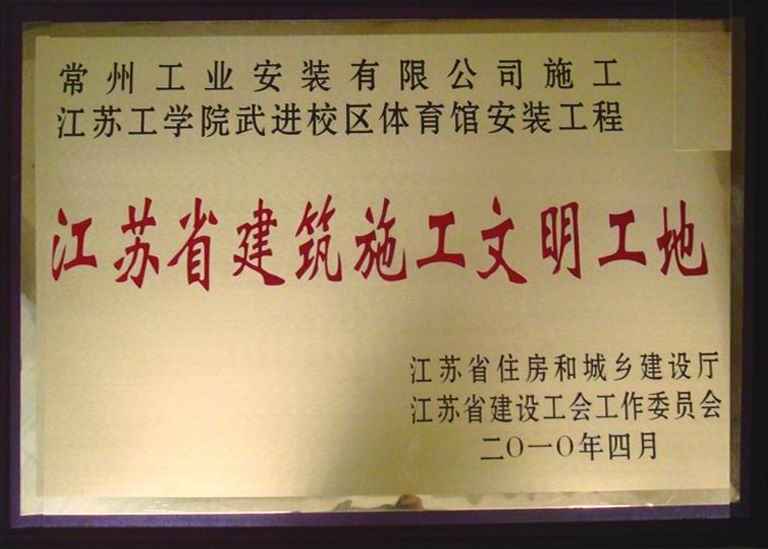 常州工业安装有限公司施工
江苏工学院武进校区体育馆安装工程
江苏省建筑施工文明工地
江苏省住房和城乡建设厅
江苏省建设工会工作委员会
二〇一〇年四月